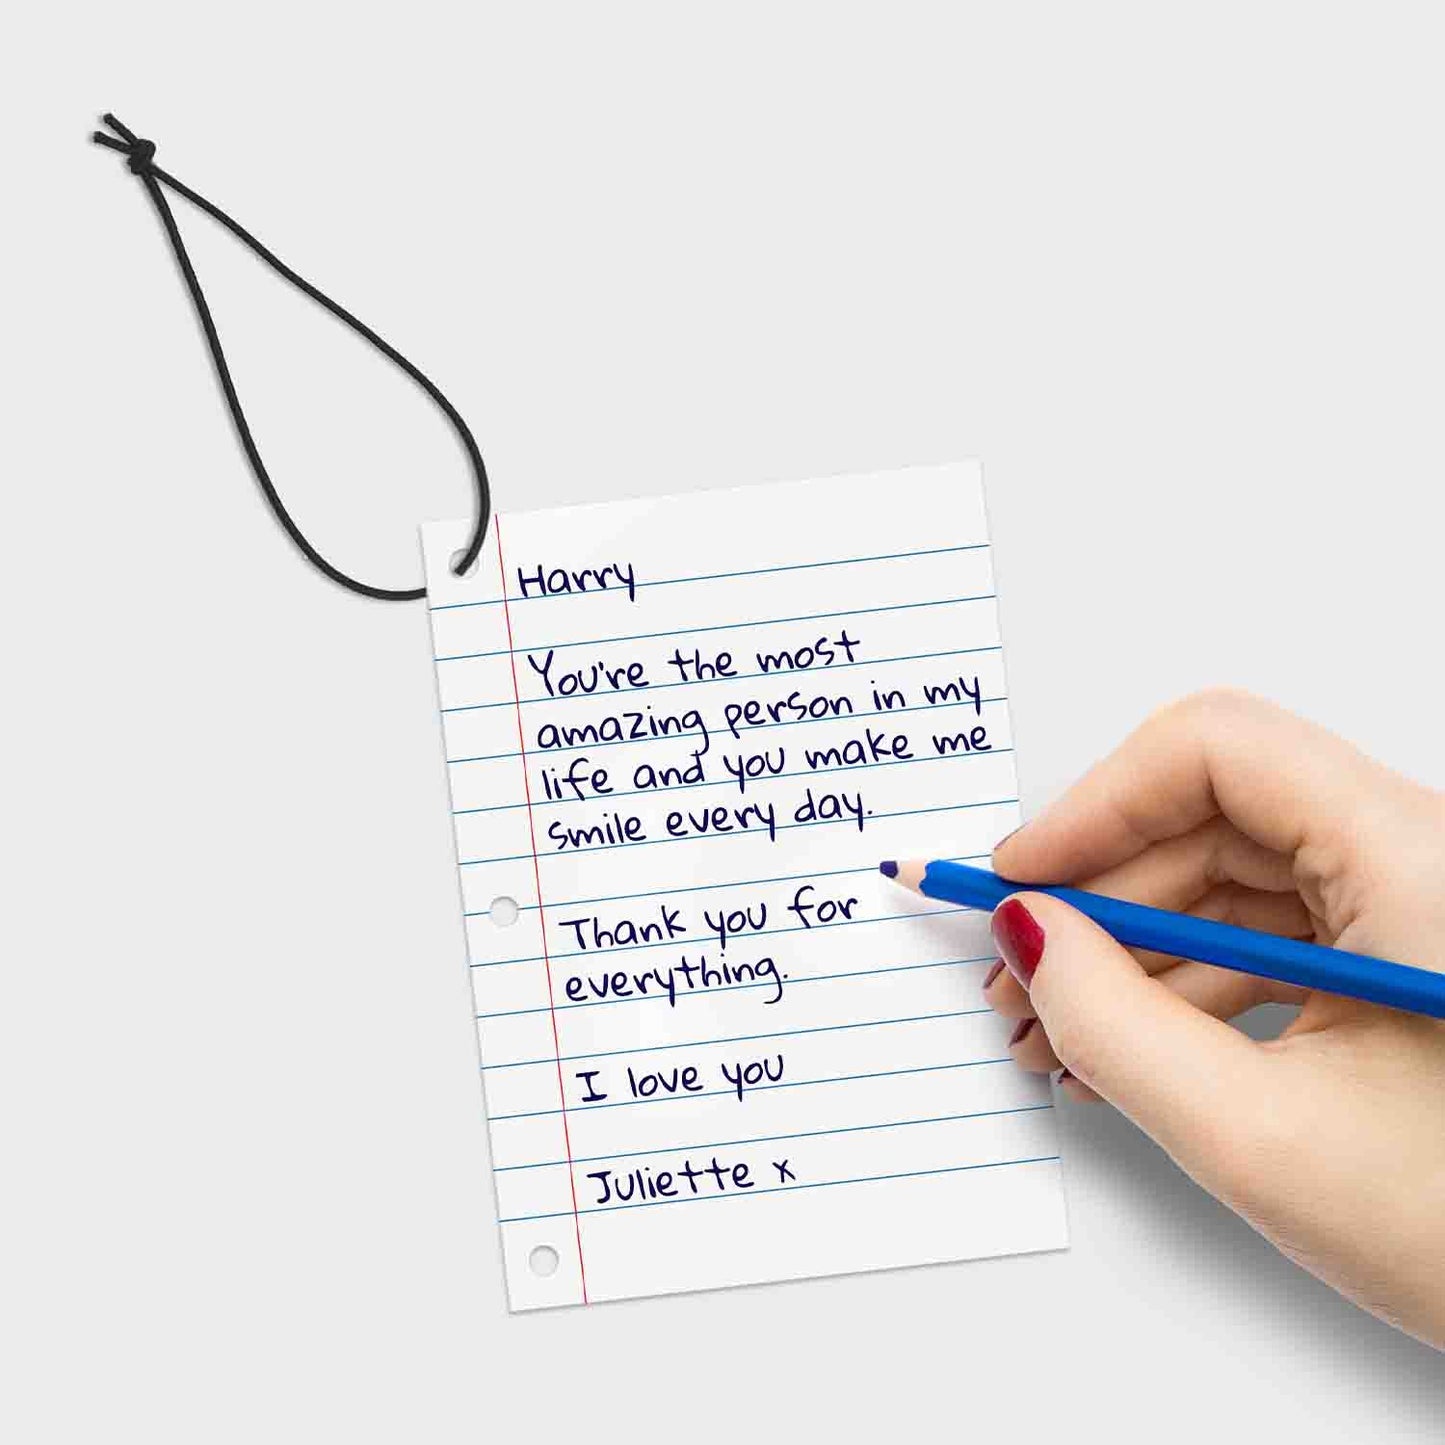 Harry
You're the most
amazing person in my
life and you make me
smile every day.
Thank you for
everything.
I love you
Juliette x